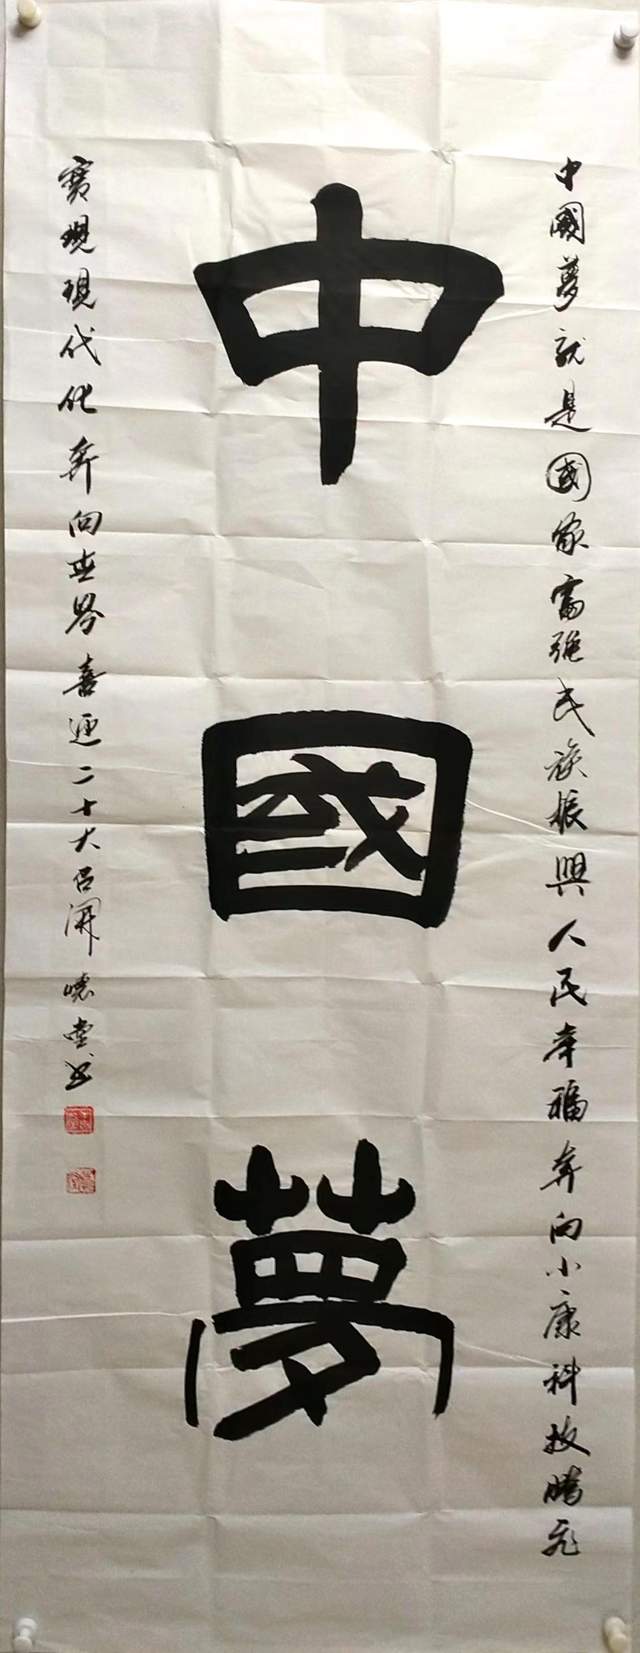 中國夢就是國家富强民族振興人民幸福奔向小康科技騰飛
中國夢
實現現代化奔向世界喜迎二十大吕開曉堂书